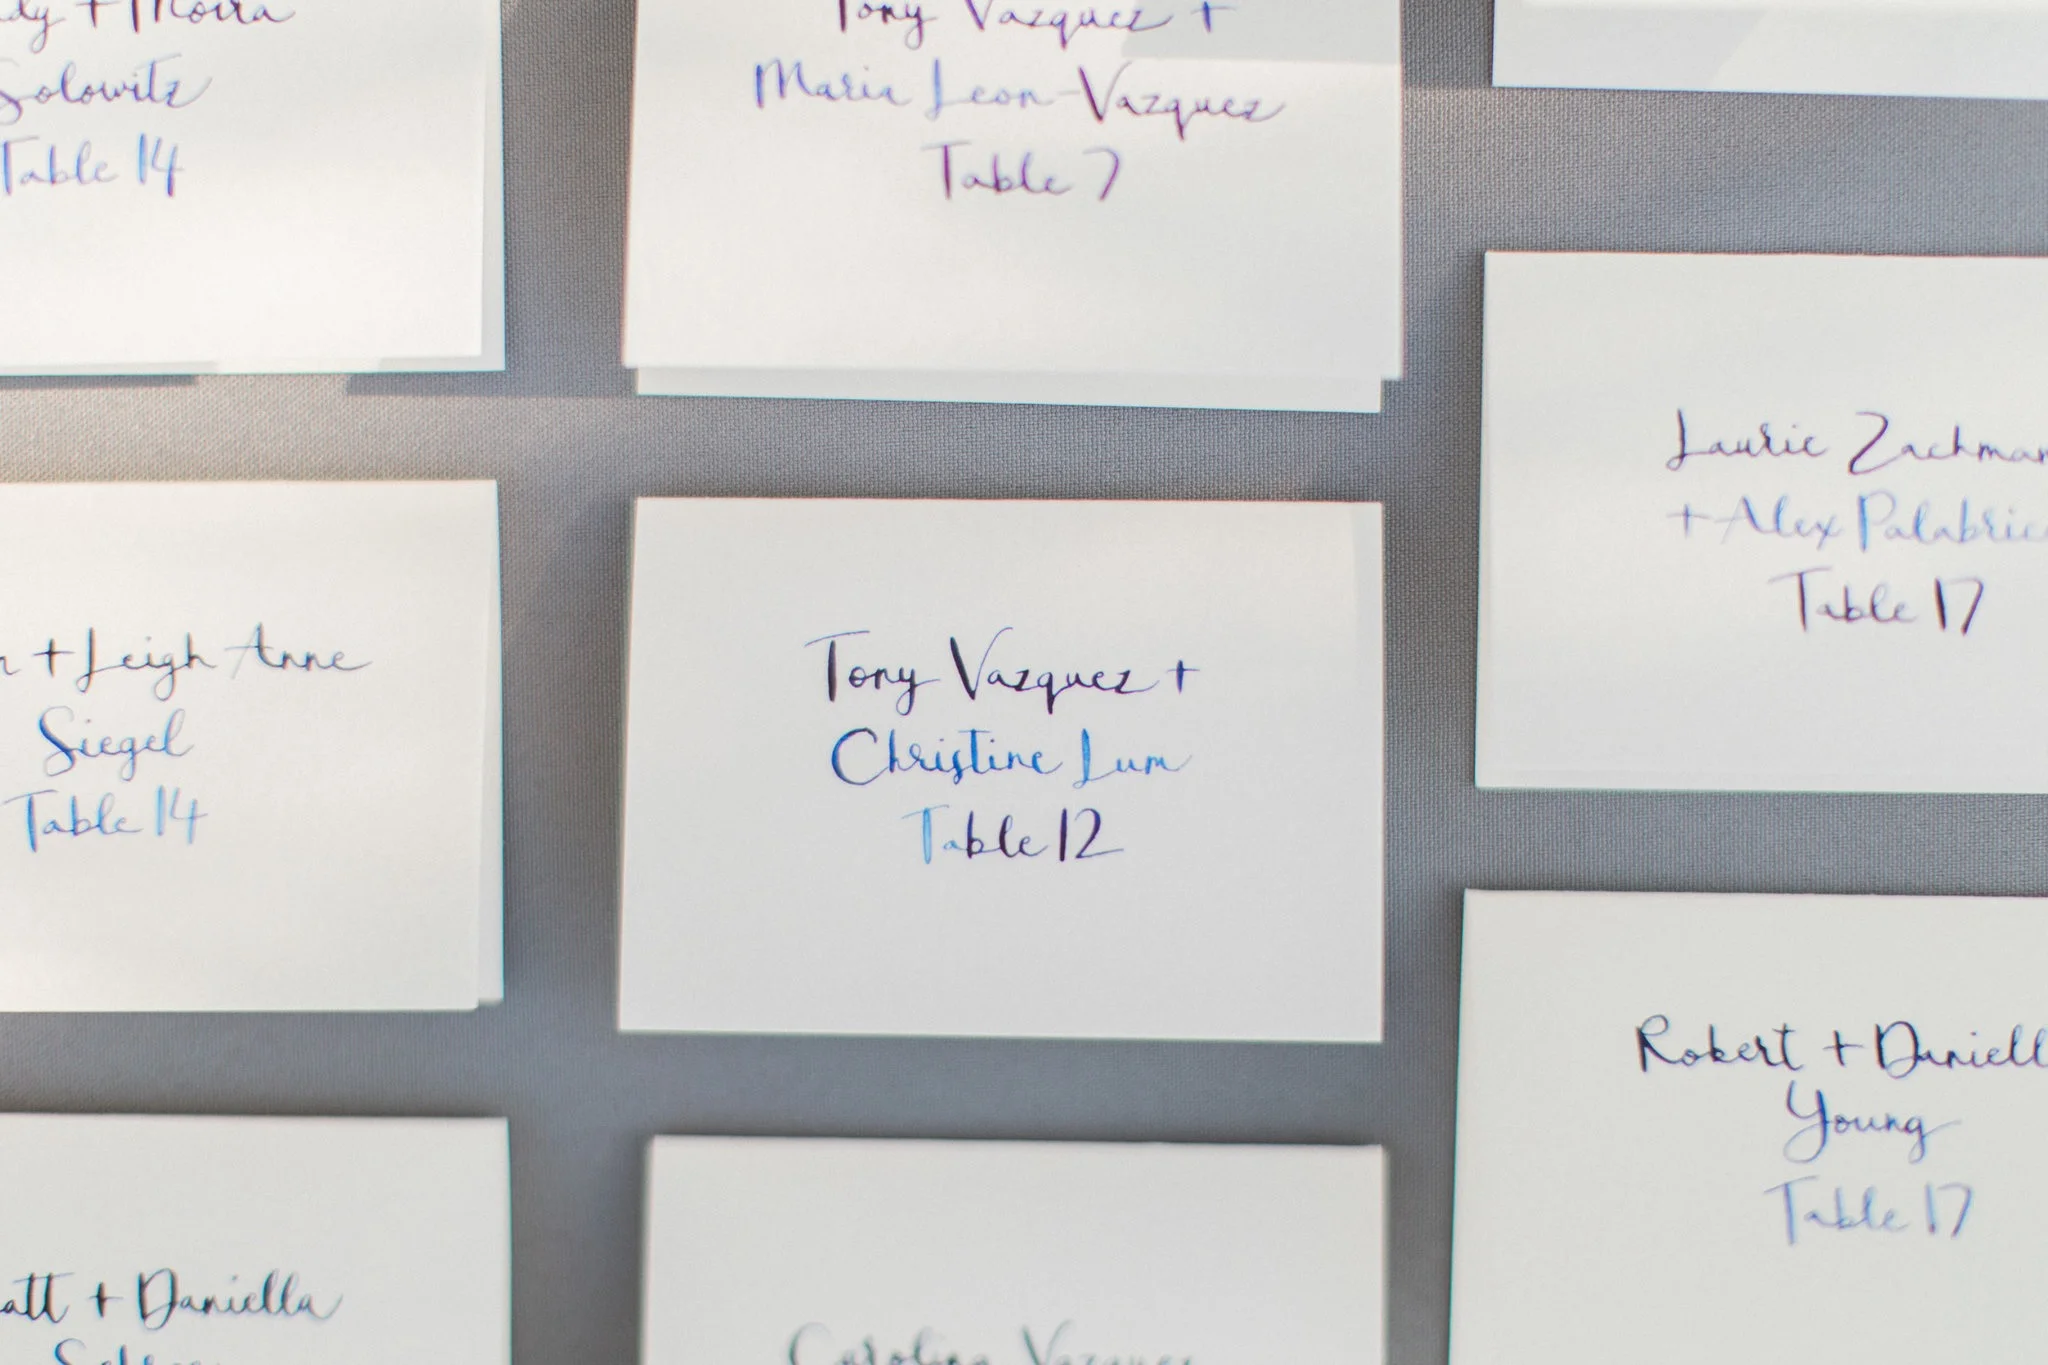 + Moira
Solowitz
Table 14
Tony Vazquez +
Maria Leon-Vazquez
Table 7
Laurie Zachman
+ Alex Palabrica
Table 17
+ Leigh Anne
Siegel
Table 14
Tony Vazquez +
Christine Lum
Table 12
Robert + Daniell
Young
Table 17
+ Daniella
Carolina Vazquez